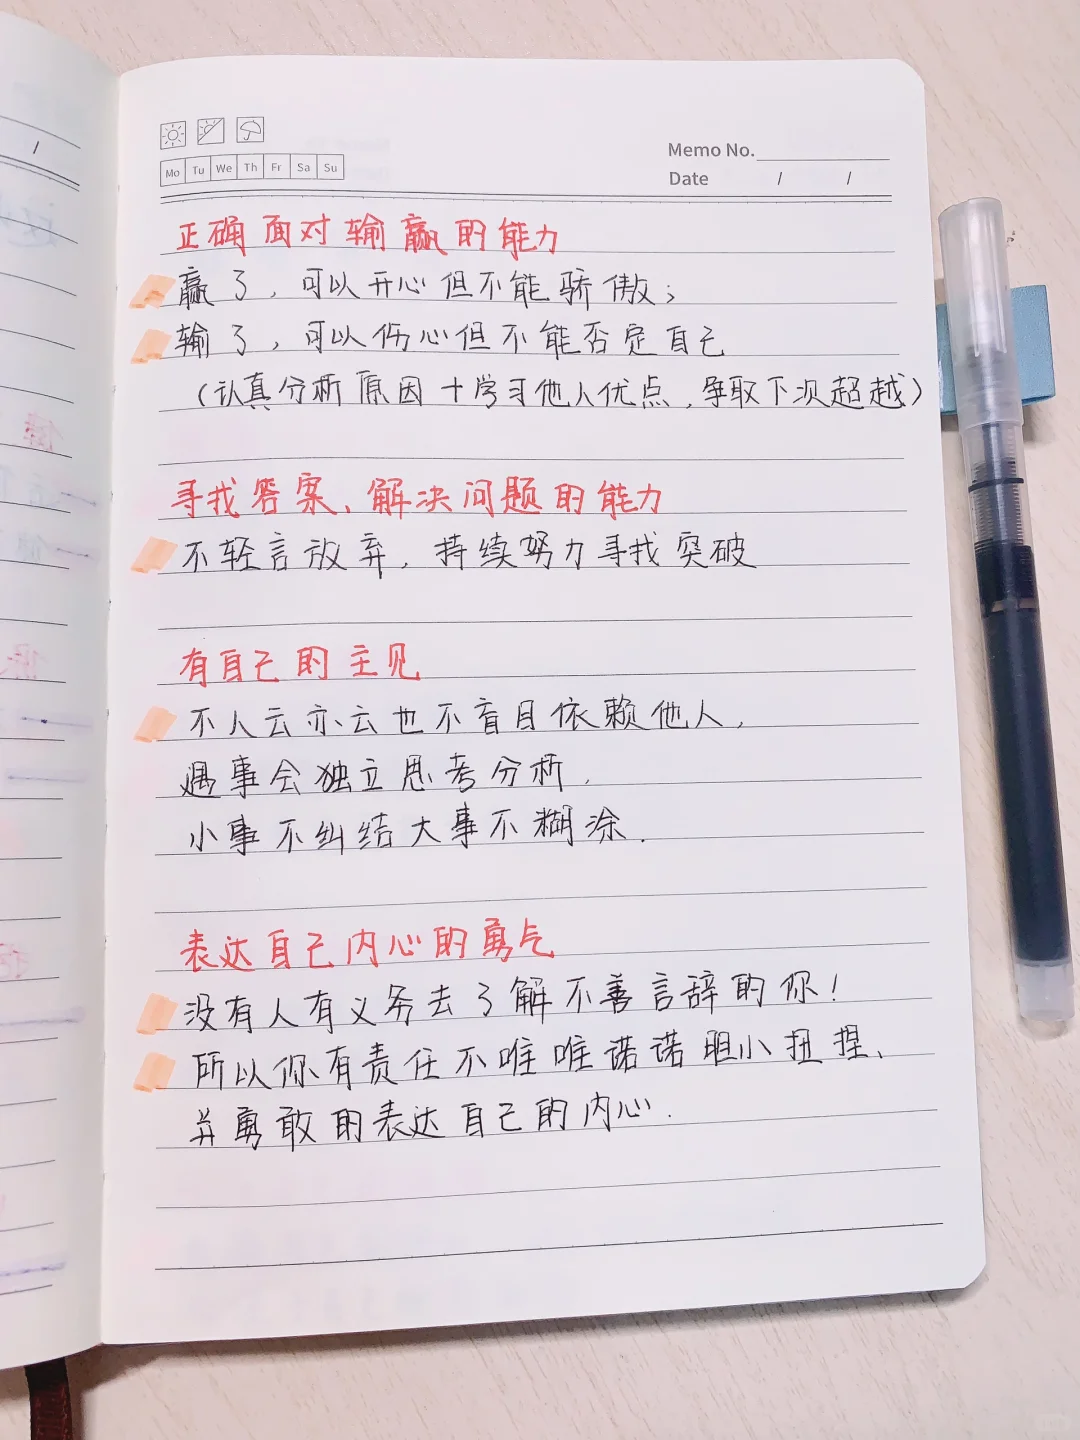 Mo Tu We Th Fr Sa Su
Memo No.
Date / /
正确面对输赢的能力
赢了，可以开心但不能骄傲；
输了，可以伤心但不能否定自己
（认真分析原因+学习他人优点，争取下次超越）
寻找答案、解决问题的能力
不轻言放弃，持续努力寻找突破
有自己的主见
不人云亦云也不盲目依赖他人，
遇事会独立思考分析，
小事不纠结大事不糊涂.
表达自己内心的勇气
没有人有义务去了解不善言辞的你！
所以你有责任不唯唯诺诺胆小扭捏、
并勇敢的表达自己的内心.